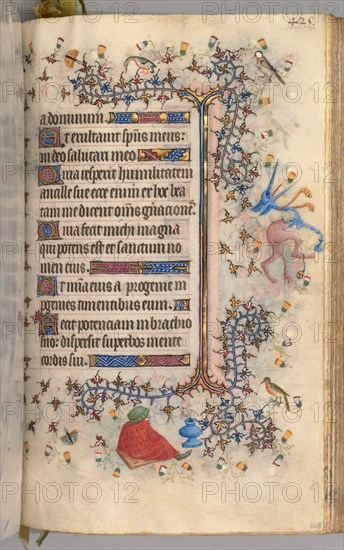 425
a dominum
Et exultavit sp̄us meus:
in deo salutari meo
Quia respexit humilitatem
ancille sue ecce enim ex hoc bea
tam me dicent om̄s gn̄acione᷒
Quia fecit michi magna
qui potens est et sanctum no
men eius
Et mīa eius a progenie in
progenies timentibus eum
Fecit potenciam in brachio
suo: dispersit superbos mente
cordis sui